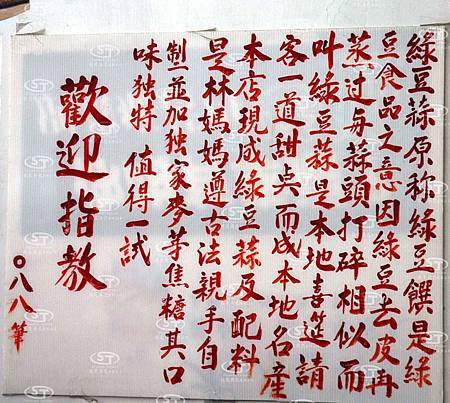 綠豆蒜原称綠豆饌是綠
豆食品之意因綠豆去皮再
蒸过与蒜頭打碎相似而
叫綠豆蒜是本地喜筵請
客一道甜奌而成本地名產
本店現成綠豆蒜及配料
是林媽媽遵古法親手自
制並加独家麥芽焦糖其口
味独特 值得一試
歡迎指教
〇八八筆